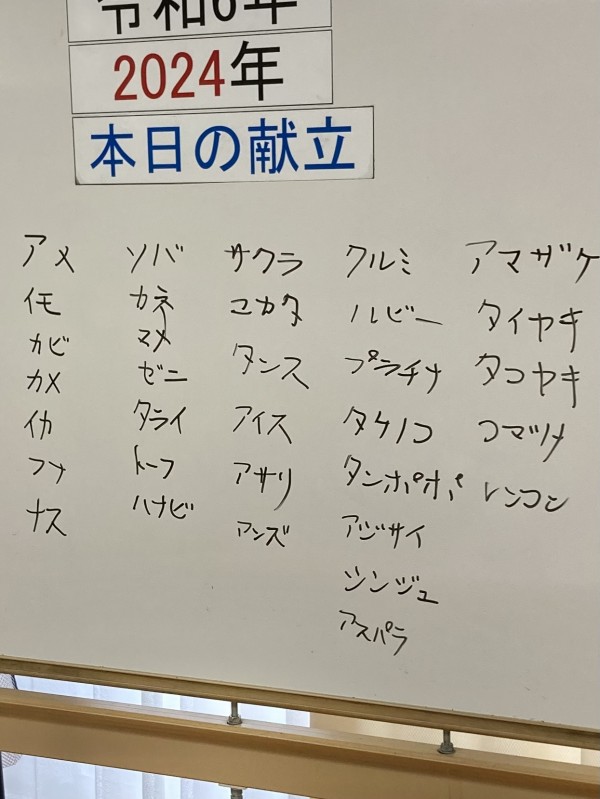 令和6年
2024年
本日の献立
アメ
イモ
カビ
カメ
イカ
フナ
ナス
ソバ
カネ
マメ
ゼニ
タライ
トーフ
ハナビ
サクラ
ユカタ
タンス
アイス
アサリ
アンズ
クルミ
ルビー
プラチナ
タケノコ
タンポポ
アジサイ
シンジュ
アスパラ
アマザケ
タイヤキ
タコヤキ
コマツナ
レンコン